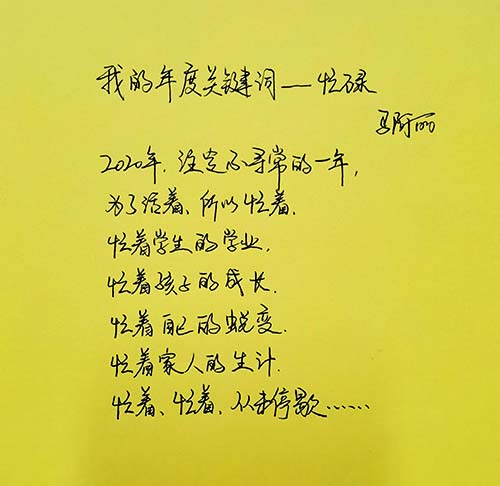 我的年度关键词——忙碌
马阿丽
2020年,注定不寻常的一年,
为了活着、所以忙着.
忙着学生的学业,
忙着孩子的成长.
忙着自己的蜕变.
忙着家人的生计.
忙着、忙着、从未停歇……